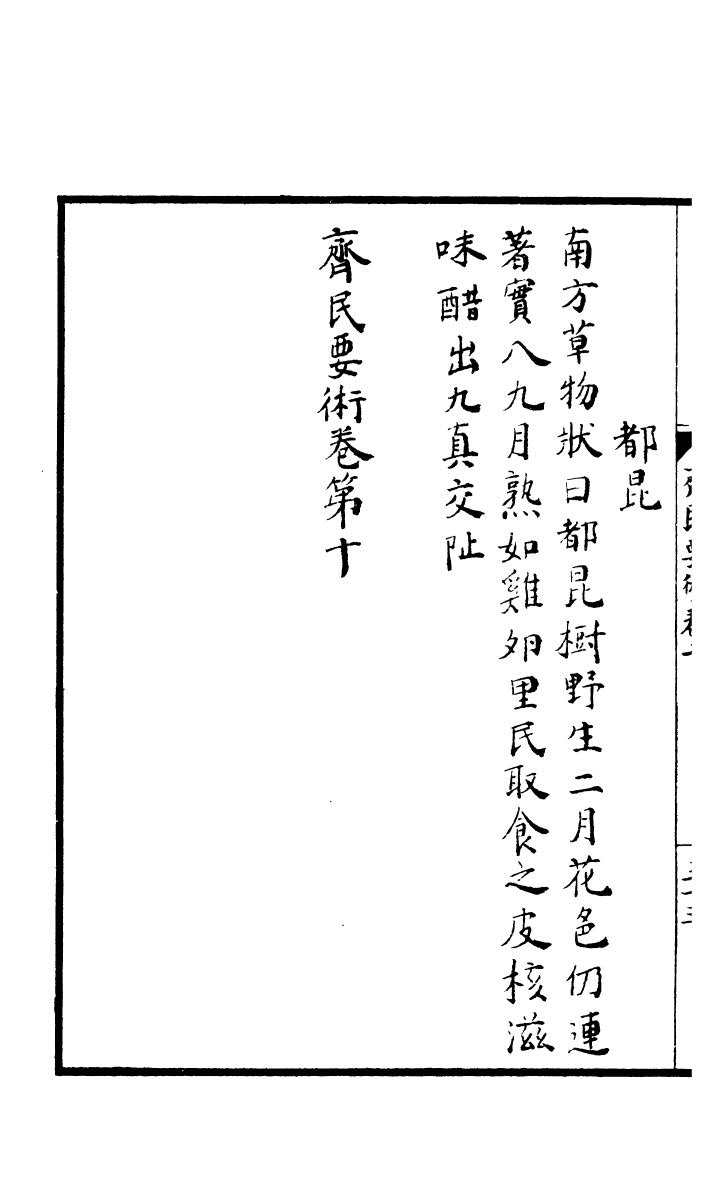 都昆
南方草物狀曰都昆樹野生二月花色仍連
著實八九月熟如雞卵里民取食之皮核滋
味醋出九真交阯
齊民要術卷第十